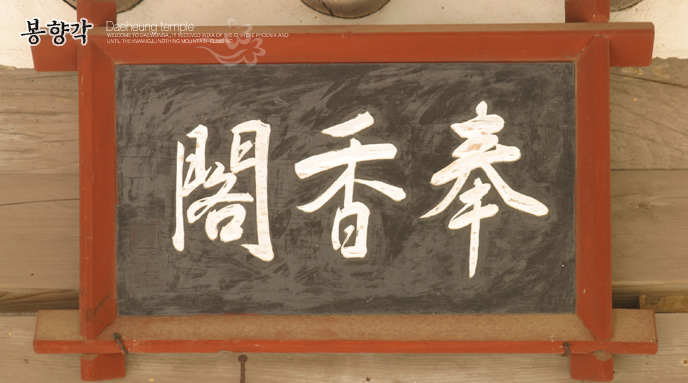 봉향각
Daeheung temple
WELCOME TO DAEWONSA, IT RECEIVED INDIA OF THE CHINESE PHOENIX AND
UNTIL THE KWANGJU NOTHING MOUNTAIN CLIMBING
奉香閣